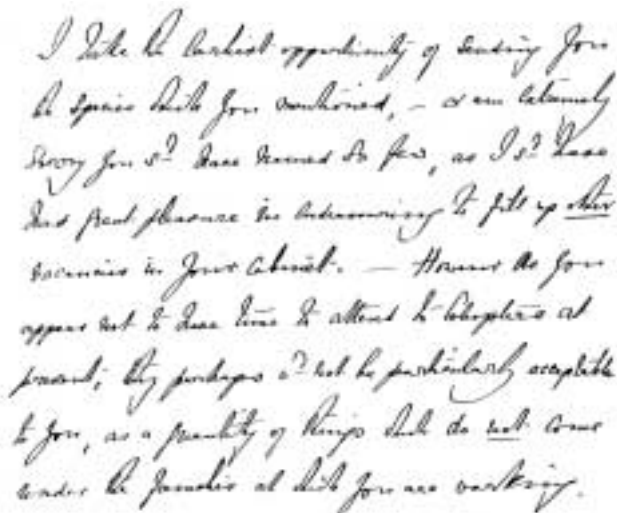 I take the earliest opportunity of sending you
the species which you mentioned, – & am extremely
sorry you sd. have named so few, as I sd. have
had great pleasure in endeavouring to fill up other
vacancies in your Cabinet. — However as you
appear not to have time to attend to Coleoptera at
present, they perhaps wd. not be particularly acceptable
to you, as a quantity of things which do not come
under the families at which you are working.